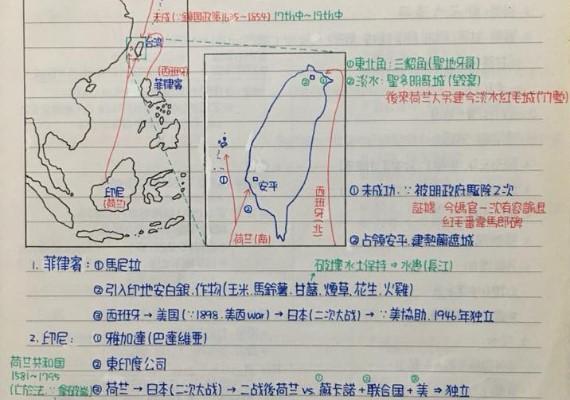 未成(∵鎖國政策1635~1854) 17th中~19th中
台灣
(西班牙)
菲律賓
印尼
(荷蘭)
①東北角:三貂角(聖地牙哥)
②淡水:聖多明哥城(毀棄)
後來荷蘭人另建今淡水紅毛城
② ①
安平
① ②
西班牙(北)
荷蘭(南)
①未成功,∵被明政府驅除2次
證據 今媽宮一次有容諭退
紅毛番韋麻郎碑
②占領安平,建熱蘭遮城
1. 菲律賓:①馬尼拉
破壞水土保持⇒水患(長江)
②引入印地安白銀,作物(玉米,馬鈴薯,甘藷,煙草,花生,火雞)
③西班牙→美國(∵1898.美西war)→日本(二次大戰)→∵美協助,1946年獨立
2. 印尼:①雅加達(巴達維亞)
荷蘭共和國
1581~1795
②東印度公司
① ② ③
③荷蘭→日本(二次大戰)→二戰後荷蘭vs.蘇卡諾+聯合國+美⇒獨立